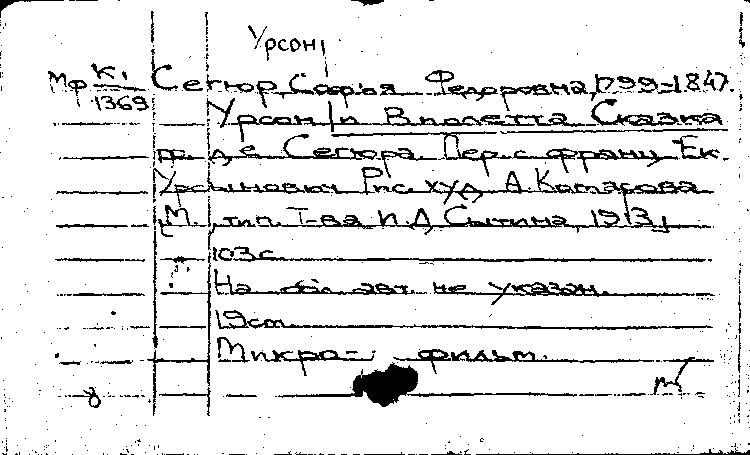 Урсон
Мф К1 Сегюр, Софья Федоровна, 1799-1847.
1369 Урсон и Виолетта Сказка
гр. де Сегюра. Пер. с франц. Ек.
Урсынович Рис. худ. А. Комарова
[М., тип. Т-ва И.Д. Сытина, 1913]
103с.
На обл. авт. не указан.
19cm.
Микро- фильм.